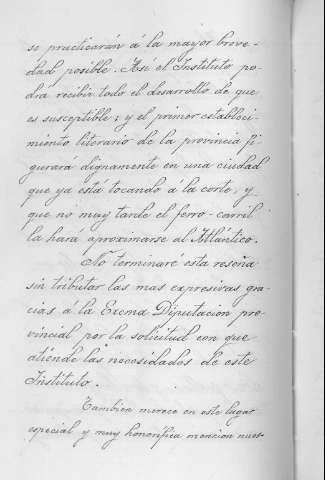 se practicarán á la mayor breve-
dad posible. Así el Instituto po-
drá recibir todo el desarrollo de que
es susceptible; y el primer estableci-
miento literario de la provincia fi-
gurará dignamente en una ciudad
que ya está tocando á la corte, y
que no muy tarde el ferro-carril
la hará aproximarse al Atlántico.
No terminaré esta reseña
sin tributar las mas expresivas gra-
cias á la Excma Diputacion pro-
vincial por la solicitud con que
atiende las necesidades de este
Instituto.
Tambien merece en este lugar
especial y muy honorífica mencion nues-